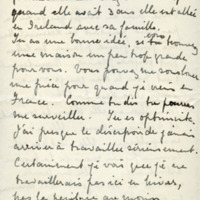 quand elle avait 3 ans elle est allée
en Ireland avec sa famille.
Tu as une bonne idée, si vous trouvez
une maison un peu trop grande
pour vous. Vous pouvez me
une pièce pour quand je viens en
France. Comme tu dis tu pourras
me surveiller. Tu es optimiste
J'ai presque le de jamais
arriver à travailler sérieusement.
Certainement je vais que je ne
travaillerais pas ici en hiver,
pas la peinture au moins